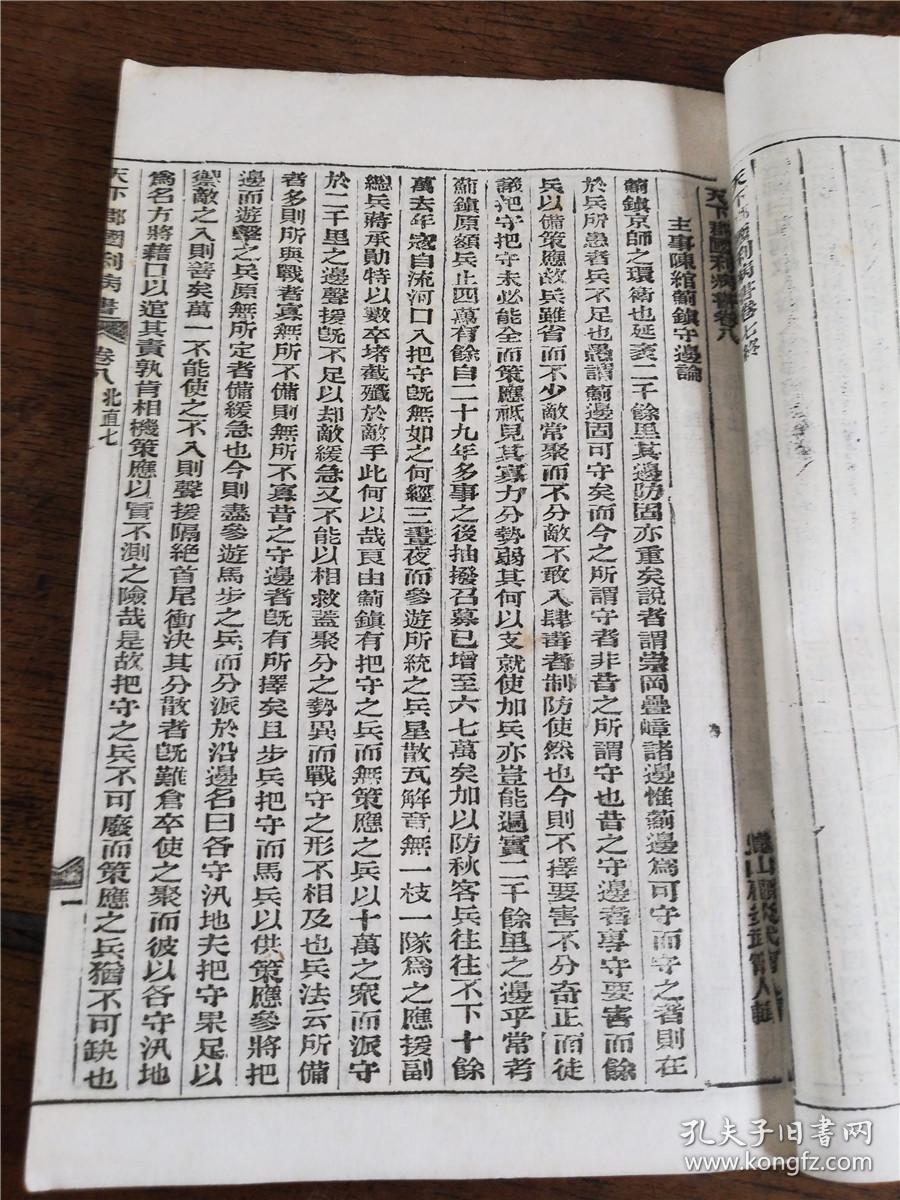 天下郡國利病書卷七終
天下郡國利病書卷八
崑山顧炎武甯人輯
主事陳綰薊鎮守邊論
薊鎮京師之環衛也延袤二千餘里其邊防固亦重矣說者謂崇岡疊嶂諸邊惟薊邊爲可守而守之者則在
於兵所患者兵不足也愚謂薊邊固可守矣而今之所謂守者非昔之所謂守也昔之守邊者專守要害而餘
兵以備策應故兵雖省而不少敵常聚而不分敵不敢入肆毒者制防使然也今則不擇要害不分奇正而徒
議把守把守未必能全而策應祗見其寡力分勢弱其何以支就使加兵亦豈能遍實二千餘里之邊乎常考
薊鎮原額兵止四萬有餘自二十九年多事之後抽撥召募已增至六七萬矣加以防秋客兵往往不下十餘
萬去年寇自流河口入把守既無如之何經三晝夜而參遊所統之兵星散瓦解竟無一枝一隊爲之應援副
總兵蔣承勛特以數卒堵截殲於敵手此何以哉良由薊鎮有把守之兵而無策應之兵以十萬之衆而派守
於二千里之邊聲援旣不足以却敵緩急又不能以相救蓋聚分之勢異而戰守之形不相及也兵法云所備
者多則所與戰者寡無所不備則無所不寡昔之守邊者旣有所擇矣且步兵把守而馬兵以供策應參將把
邊而遊擊之兵原無所定者備緩急也今則盡參遊馬步之兵而分派於沿邊名曰各守汛地夫把守果足以
禦敵之入則善矣萬一不能使之不入則聲援隔絶首尾衝決其分散者旣難倉卒使之聚而彼以各守汛地
爲名方將藉口以逭其責孰肯相機策應以嘗不測之險哉是故把守之兵不可廢而策應之兵猶不可缺也
天下郡國利病書 卷八 北直七 一
孔夫子旧书网
www.kongfz.com